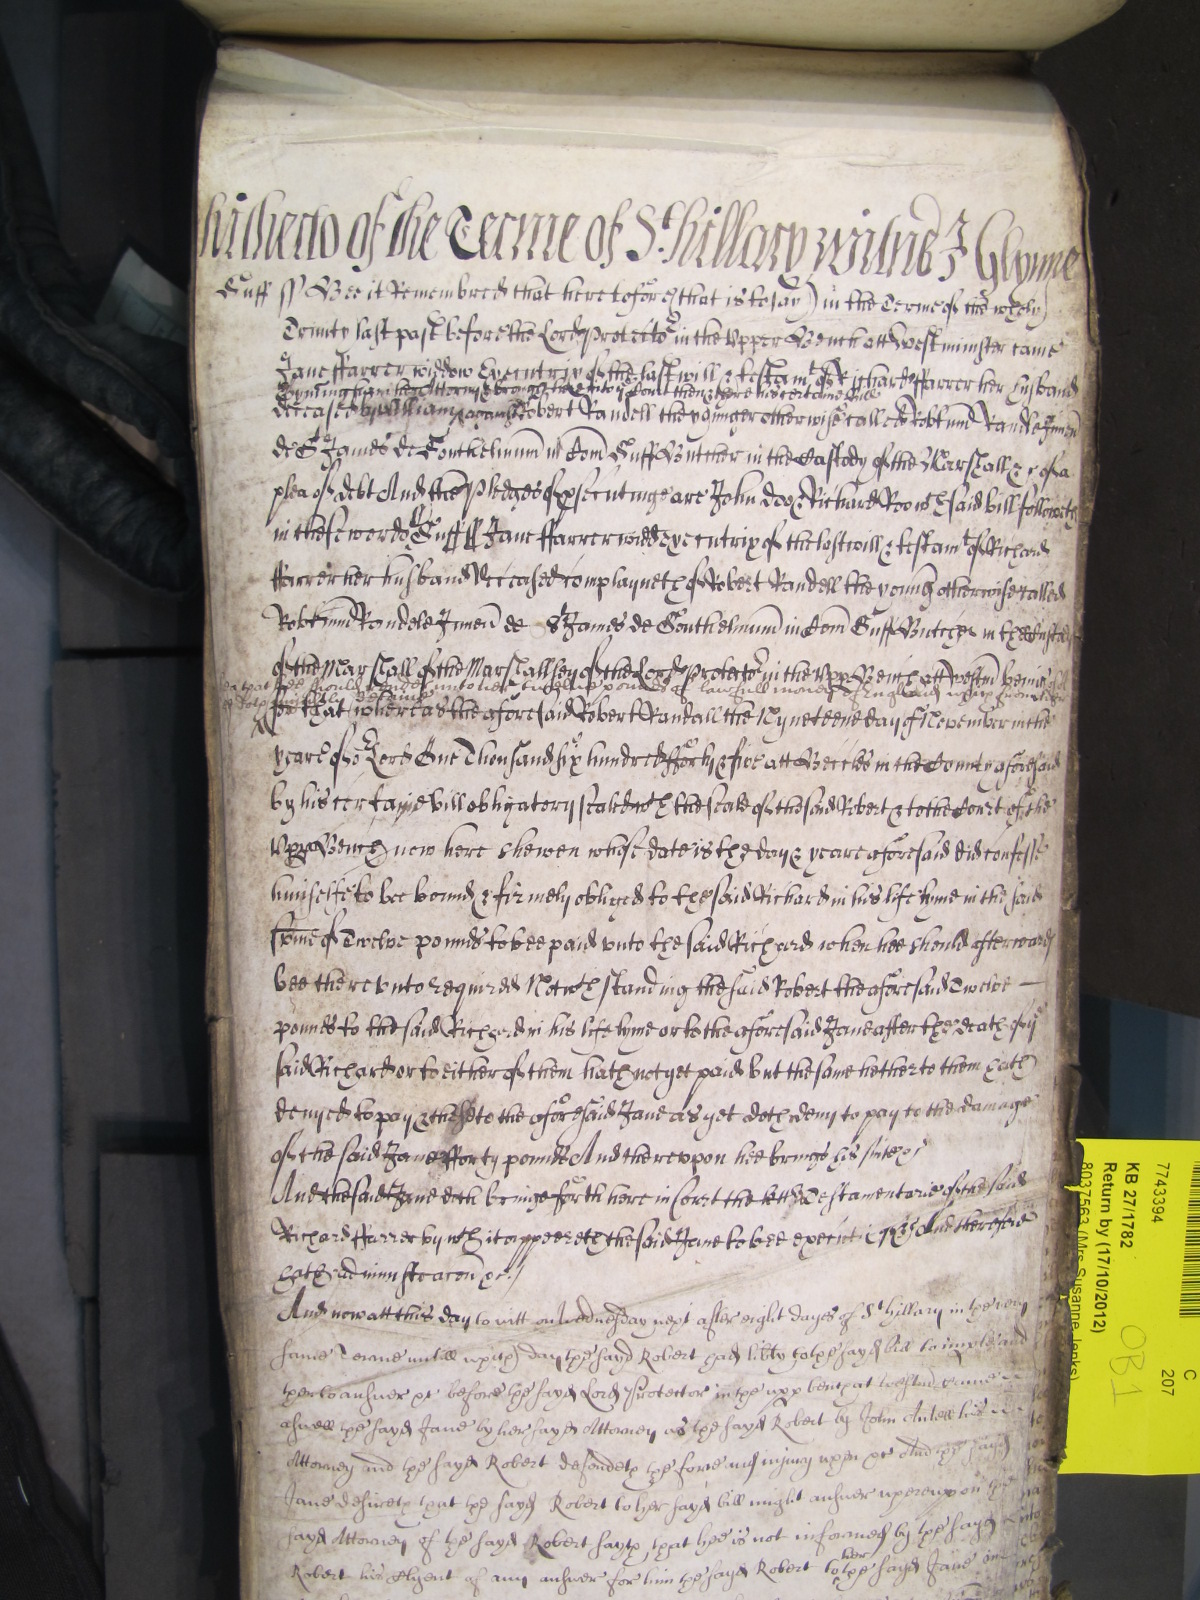 hitherto of the Terme of St. Hillary witnes J Glynne
Suff ss Bee it Remembred that heretofore (that is to say) in the Terme of the wholy
Trinity last past before the Lord Protector in the Upper Bench att Westminster came
Jane ffarrer widdow Executrix of the last will & testamt of Richard ffarrer her husband
her Attorney & brought here into Court then & there her certaine bill
deceased by William against Robert Randell the younger otherwise called Robtum Randele Juniorem
de St James de Southelmum in Com Suff Butcher in the Custody of the Marshall &c of a
plea of debt And the pledges of prosecutinge are John doo & Richard Roo wch said bill followeth
in these words Suff ss Jane ffarrer widd executrix of the last will & testamt of Richard
ffarrer her husband deceased complayneth of Robert Randell the young otherwise called
Robtum Randele Juniorem de St James de Southelmum in Com Suff Butcher in the Custody
of the Marshall of the Marshallsey of the Lord Protector in the Upp Bench att Westm beinge
that hee should render unto her twelve pounds of lawfull money of England which from her
for that whereas the aforesaid Robert Randall the Nyneteene day of November in the
yeare of or Lord One Thousand six hundred fforty & five att Beccles in the County aforesaid
by his certayne bill obligatory sealed wth the seale of the said Robert & to the Court of the
Upp Bench now here shewen whose date is the day & yeare aforesaid did confesse
himselfe to bee bound & firmely obliged to the said Richard in his life tyme in the said
summe of Twelve pounds to bee paid unto the said Richard when hee should afterwards
bee thereunto required Notwthstanding the said Robert the aforesaid Twelve
pounds to the said Richard in his life tyme or to the aforesaid Jane after the death of ye
said Richard or to either of them hath not yet paid but the same hetherto to them hath
denyed to pay & the same to the aforesaid Jane as yet doth deny to pay to the damage
of the said Jane fforty pounds And thereupon hee brings his suite &c
And the said Jane doth bringe forth here in Court the letters Testamentarie of the said
Richard ffarrer by wch it appeereth the said Jane to bee And thereof
hath administracon &c.
And now att this day to witt on Wednesday next after eight dayes of St Hillary in the very
same Terme untill which day the sayd Robert had libty to the sayd bill to imparle and
then to answer &c before the sayd Lord Protector in the upp bench at Westm came
aswell the sayd Jane by her sayd Attorney as the sayd Robert by John his
Attorney and the sayd Robert defendeth the force and injury when &c And the sayd
Jane desireth that the sayd Robert to her sayd bill might answer whereupon the
sayd Attorney of the sayd Robert sayth that hee is not informed by the sayd
Robert his Clyent of any answer for him the sayd Robert to the sayd Jane
her
7743394
KB 27/1782
Return by (17/10/2012)
8037563 (Mrs Susanne Jenks)
C
207
OB1